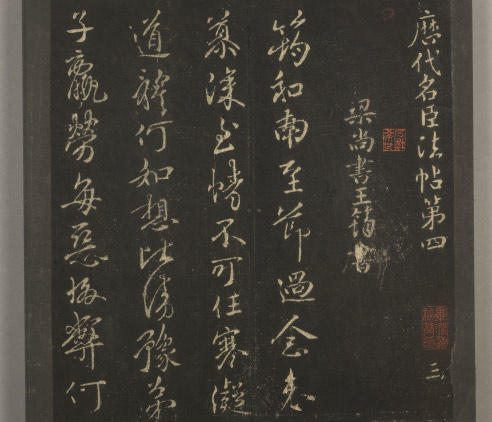 歷代名臣法帖第四
三
梁尚書王筠書
筠和南至節過念哀
慕深至情不可任寒凝
道體何如想比清豫弟
子羸勞每惡弊何